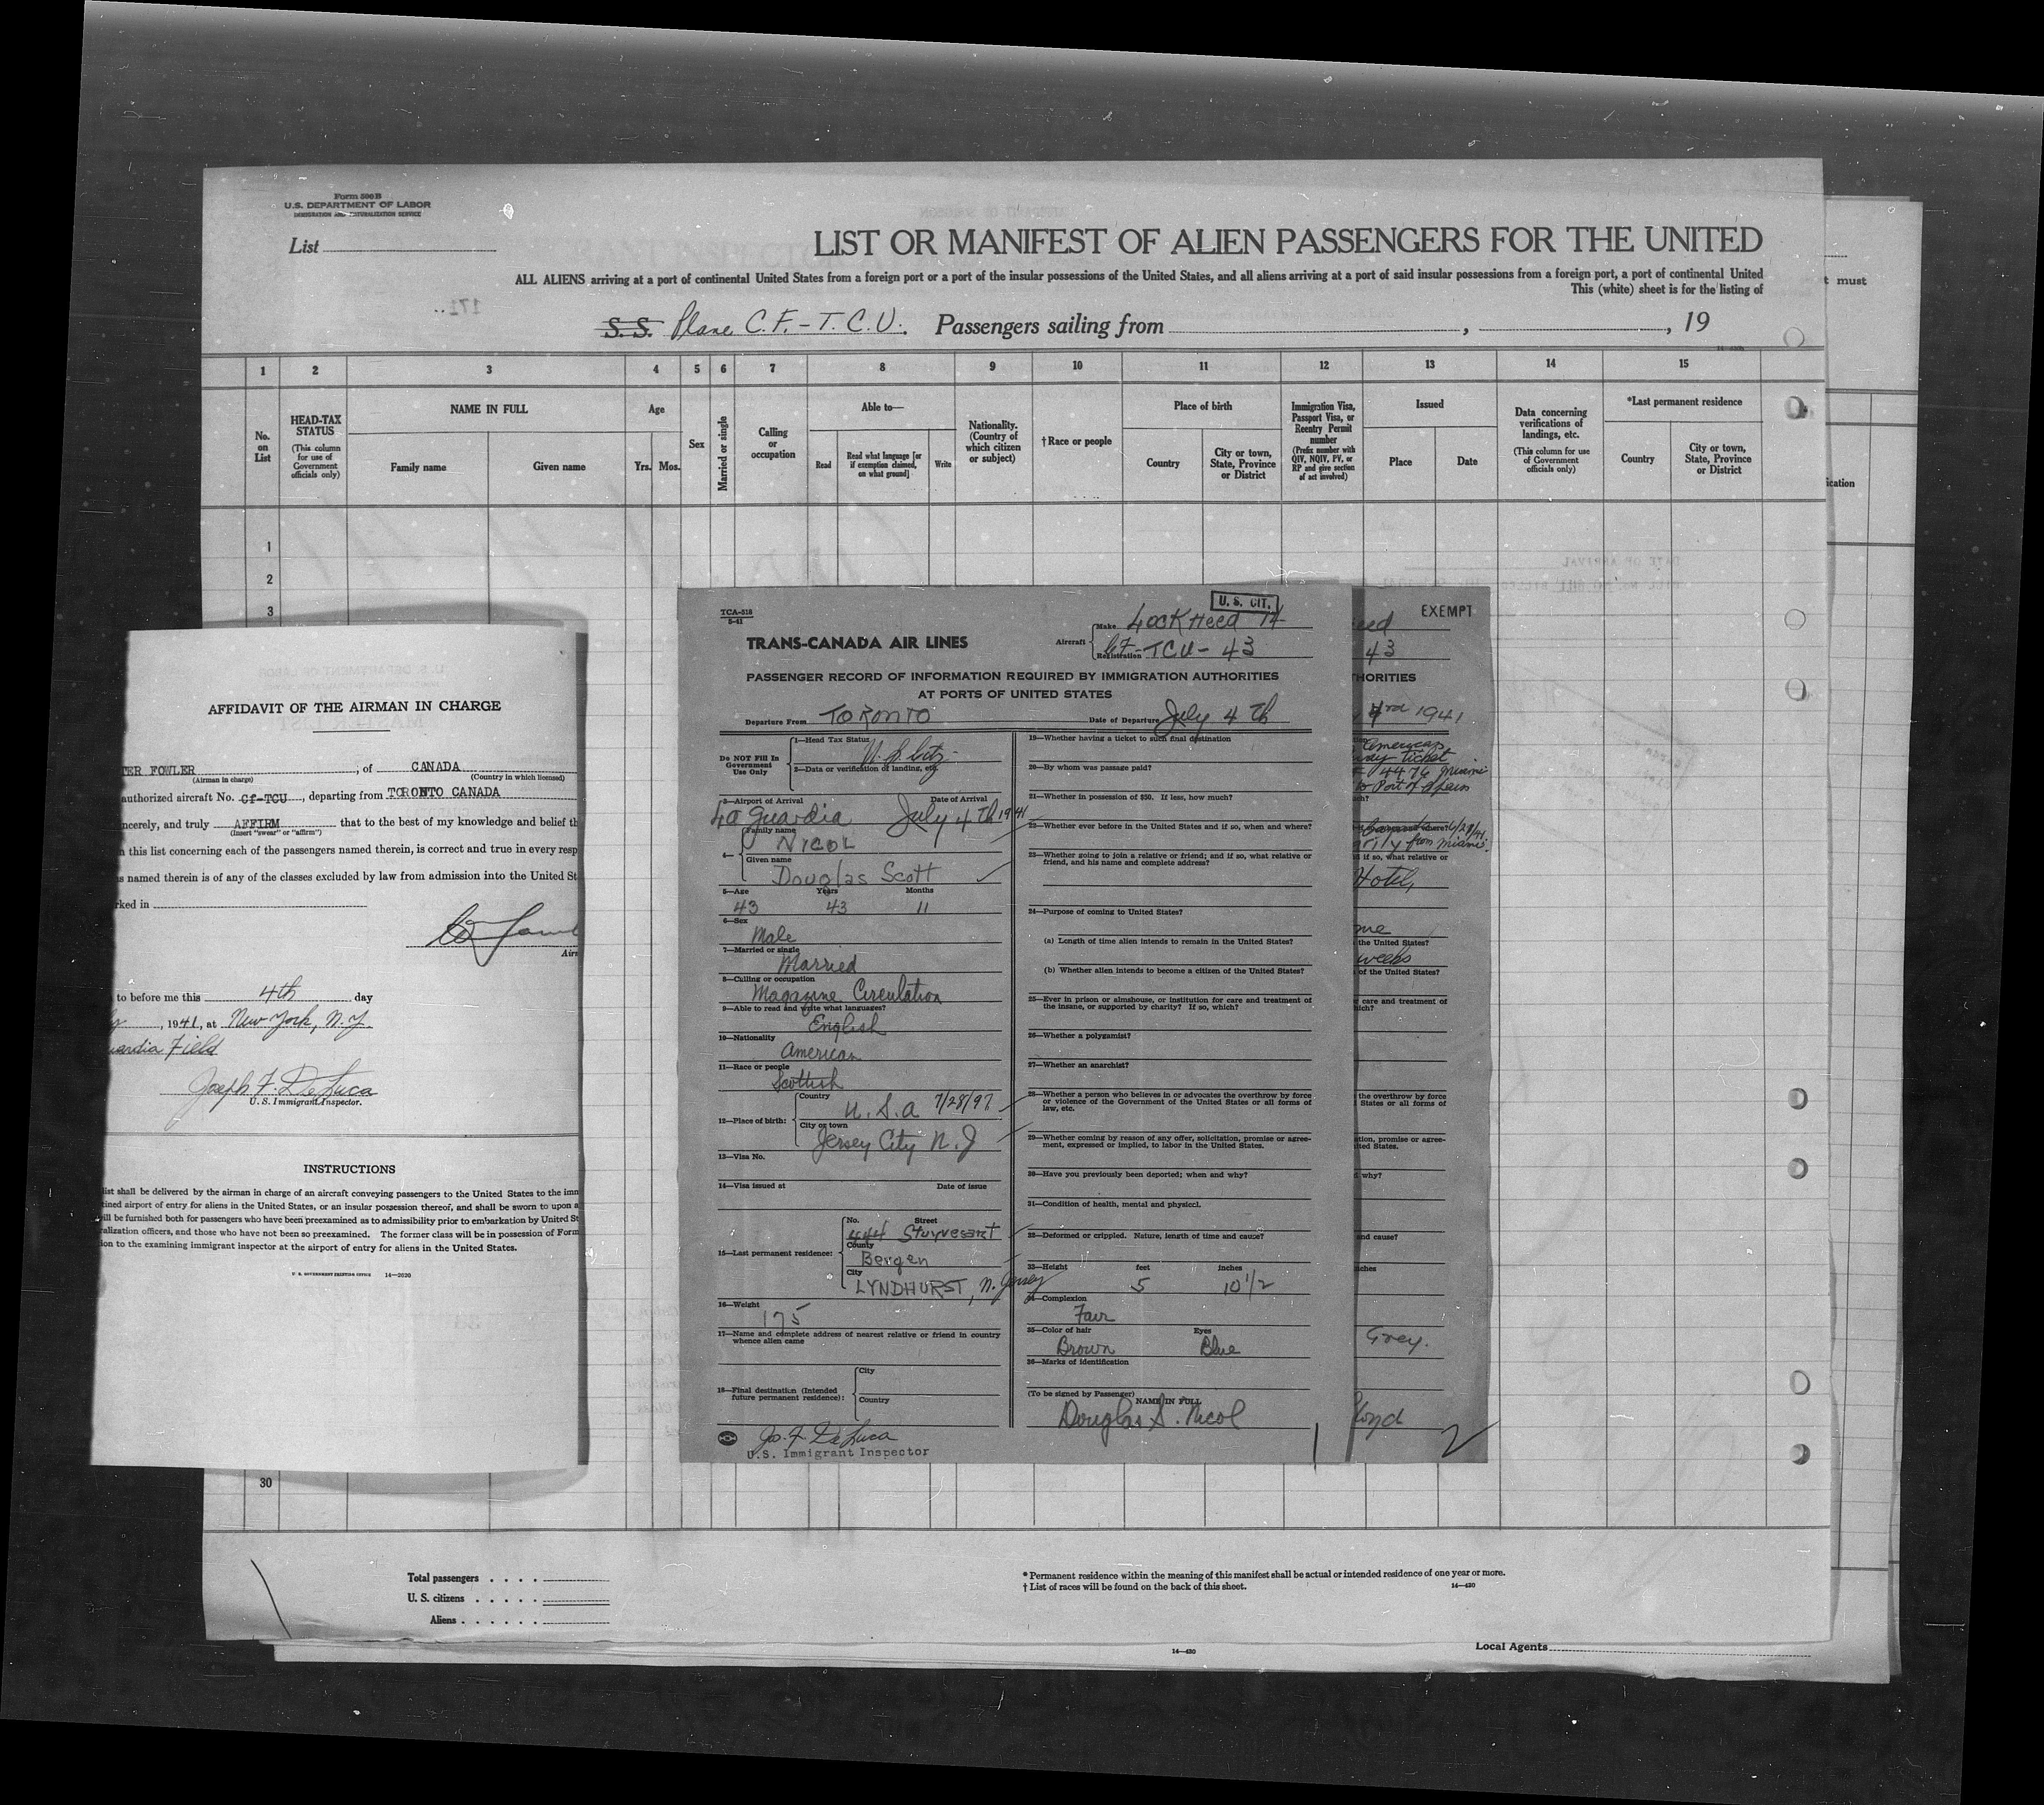 Form 500B
U.S. DEPARTMENT OF LABOR
IMMIGRATION AND NATURALIZATION SERVICE
List
LIST OR MANIFEST OF ALIEN PASSENGERS FOR THE UNITED
ALL ALIENS arriving at a port of continental United States from a foreign port or a port of the insular possessions of the United States, and all aliens arriving at a port of said insular possessions from a foreign port, a port of continental United
This (white) sheet is for the listing of
t must
S.S. Plane C.F.-T.C.U. Passengers sailing from , , 19
1 2 3 4 5 6 7 8 9 10 11 12 13 14 15
HEAD-TAX STATUS
(This column for use of Government officials only)
No. on List
NAME IN FULL
Family name
Given name
Age
Yrs. Mos.
Sex
Married or single
Calling or occupation
Able to—
Read
Read what language [or if exemption claimed, on what ground]
Write
Nationality. (Country of which citizen or subject)
† Race or people
Place of birth
Country
City or town, State, Province or District
Immigration Visa, Passport Visa, or Reentry Permit number
(Prefix number with QIV, NQIV, PV, or RP and give section of act involved)
Issued
Place
Date
Data concerning verifications of landings, etc.
(This column for use of Government officials only)
*Last permanent residence
Country
City or town, State, Province or District
ication
1
2
3
AFFIDAVIT OF THE AIRMAN IN CHARGE
TER FOWLER , of CANADA
(Airman in charge) (Country in which licensed)
authorized aircraft No. Cf-TCU , departing from TORONTO CANADA
ncerely, and truly AFFIRM that to the best of my knowledge and belief th
(Insert "swear" or "affirm")
n this list concerning each of the passengers named therein, is correct and true in every resp
s named therein is of any of the classes excluded by law from admission into the United St
rked in
Air
to before me this 4th day
y , 1941, at New York, N.Y.
uardia Field
Joseph F. DeLuca
U.S. Immigrant Inspector.
INSTRUCTIONS
list shall be delivered by the airman in charge of an aircraft conveying passengers to the United States to the imm
tined airport of entry for aliens in the United States, or an insular possession thereof, and shall be sworn to upon a
ill be furnished both for passengers who have been preexamined as to admissibility prior to embarkation by United St
ralization officers, and those who have not been so preexamined. The former class will be in possession of Form
ion to the examining immigrant inspector at the airport of entry for aliens in the United States.
U. S. GOVERNMENT PRINTING OFFICE 14—2020
TCA-518
5-41
U. S. CIT.
TRANS-CANADA AIR LINES
Aircraft
Make Lockheed 14
Registration CF-TCU-43
PASSENGER RECORD OF INFORMATION REQUIRED BY IMMIGRATION AUTHORITIES
AT PORTS OF UNITED STATES
Departure From TORONTO Date of Departure July 4 Th
Do NOT Fill In Government Use Only
1—Head Tax Status U.S. Citz.
2—Data or verification of landing, etc.
3—Airport of Arrival Date of Arrival
La Guardia July 4 Th 1941
4— Family name
NICOL
Given name
Douglas Scott
5—Age Years Months
43 43 11
6—Sex
Male
7—Married or single
Married
8—Calling or occupation
Magazine Circulation
9—Able to read and write what languages?
English
10—Nationality
American
11—Race or people
Scottish
12—Place of birth:
Country
U.S.A 7/28/97
City or town
Jersey City N.J
13—Visa No.
14—Visa issued at Date of issue
15—Last permanent residence:
No. Street
444 Stuyvesant
County
Bergen
City
LYNDHURST, N. Jersey
16—Weight
175
17—Name and complete address of nearest relative or friend in country whence alien came
18—Final destination (Intended future permanent residence):
City
Country
Jos. F. DeLuca
U.S. Immigrant Inspector
19—Whether having a ticket to such final destination
20—By whom was passage paid?
21—Whether in possession of $50. If less, how much?
22—Whether ever before in the United States and if so, when and where?
23—Whether going to join a relative or friend; and if so, what relative or friend, and his name and complete address?
24—Purpose of coming to United States?
(a) Length of time alien intends to remain in the United States?
(b) Whether alien intends to become a citizen of the United States?
25—Ever in prison or almshouse, or institution for care and treatment of the insane, or supported by charity? If so, which?
26—Whether a polygamist?
27—Whether an anarchist?
28—Whether a person who believes in or advocates the overthrow by force or violence of the Government of the United States or all forms of law, etc.
29—Whether coming by reason of any offer, solicitation, promise or agreement, expressed or implied, to labor in the United States.
30—Have you previously been deported; when and why?
31—Condition of health, mental and physical.
32—Deformed or crippled. Nature, length of time and cause?
33—Height feet inches
5 10 1/2
34—Complexion
Fair
35—Color of hair Eyes
Brown Blue
36—Marks of identification
(To be signed by Passenger) NAME IN FULL
Douglas S. Nicol
1
EXEMPT
eed
43
HORITIES
3rd 1941
American
way ticket
4476 Miami
to Port of Spain
6/29/41
from Miami
if so, what relative or
Hotel,
me
the United States?
weeks
of the United States?
care and treatment of
hich?
the overthrow by force
States or all forms of
tion, promise or agree-
ted States.
why?
and cause?
nches
Grey.
loyd
2
30
Total passengers
U. S. citizens
Aliens
* Permanent residence within the meaning of this manifest shall be actual or intended residence of one year or more.
† List of races will be found on the back of this sheet. 14—430
14—430
Local Agents